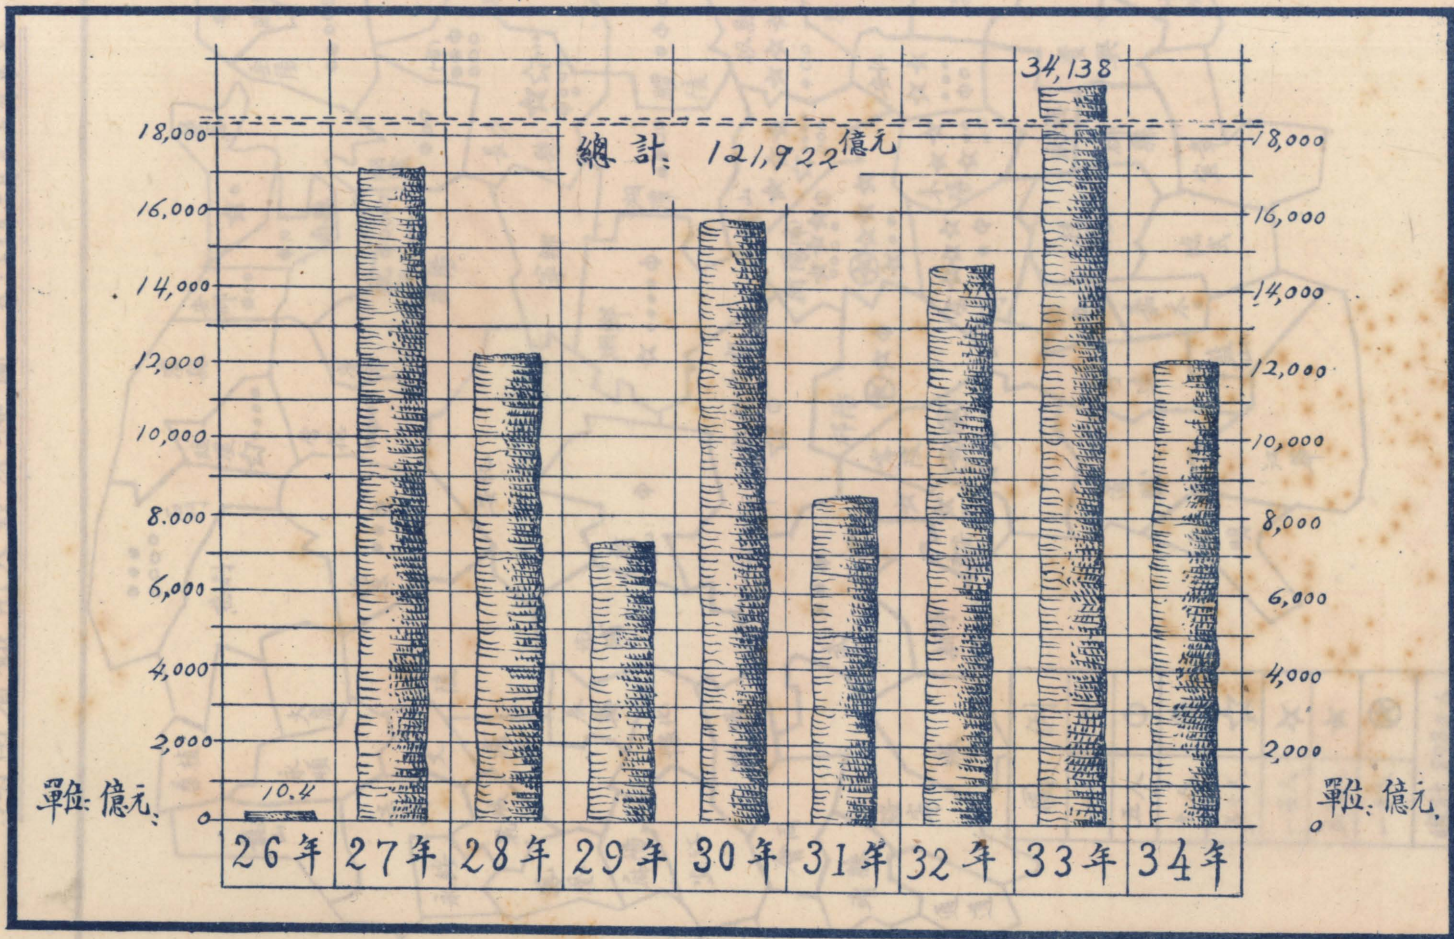 34,138
總計: 121,922億元
18,000
16,000
14,000
12,000
10,000
8.000
6,000
4,000
2,000
0
單位: 億元.
18,000
16,000
14,000
12,000
10,000
8,000
6,000
4,000
2,000
0
單位: 億元.
10.4
26年 27年 28年 29年 30年 31年 32年 33年 34年